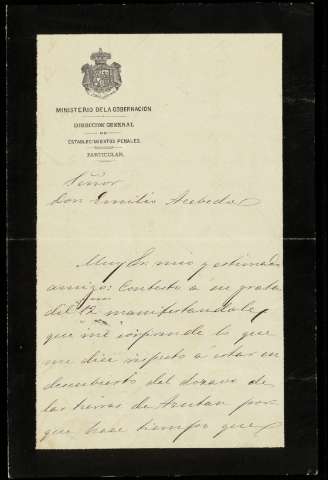 MINISTERIO DE LA GOBERNACIÓN
DIRECCION GENERAL
DE
ESTABLECIMIENTOS PENALES.
PARTICULAR.
Señor
Don Emilio Acebedo
Muy Sr. mio y estimado
amigo: Contesto á su grata
del 12 manifestandole
que me sorprende lo que
me dice respeto á estar en
descubierto del dozavo de
las tierras de Azután por
que hace tiempo que